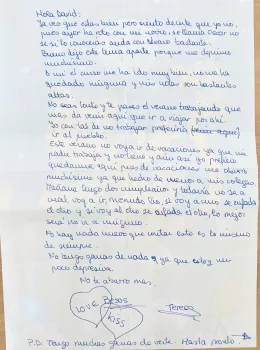 Hola David:
Ya veo que estas bien pero siento decirte que yo no,
pues ayer he roto con mi novio, se llama Oscar no
se si lo conoceras anda con Alvaro bastante.
Bueno dejo este tema aparte porque me deprimo
muchisimo.
A mi el curso me ha ido muy bien, no me ha
quedado ninguna y mis notas son bastantes
altas.
No seas tonto y te pases el verano trabajando que
mas da venir aqui que ir a viajar por ahi.
Yo con tal de no trabajar preferiria
ir al pueblo.
Este verano no voy a ir de vacaciones ya que mi
padre trabaja y aun asi yo prefiero
quedarme aqui pues de vacaciones me aburro
muchisimo ya que hecho de menos a mis colegas
Mañana tengo dos cumpleaños y todavia no se a
cual voy a ir, menudo lio, si voy a uno se enfada
el otro y si voy al otro se enfada el otro, lo mejor
sera no ir a ninguno.
No hay nada nuevo que contar esto es lo mismo
de siempre.
No tengo ganas de nada ya que estoy un
poco depresiva.
No te aburro mas.
LOVE
Besos
KISS
Teresa
P.D. Tengo muchas ganas de verte. Hasta pronto.